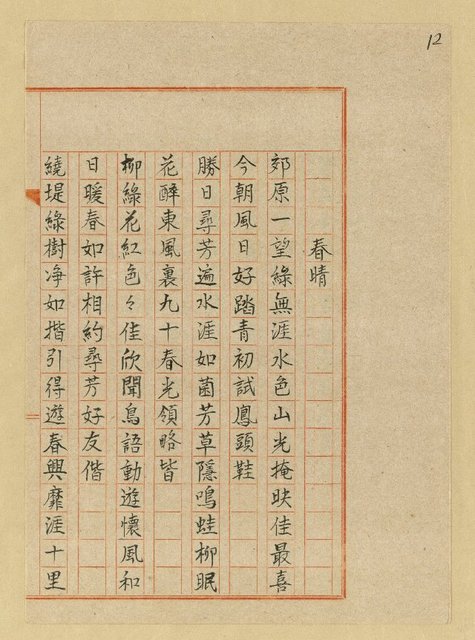 12
春晴
郊原一望綠無涯水色山光掩映佳最喜
今朝風日好踏青初試鳳頭鞋
勝日尋芳遍水涯如茵芳草隱鳴蛙柳眠
花醉東風裏九十春光領略皆
柳綠花紅色々佳欣聞鳥語動遊懷風和
日暖春如許相約尋芳好友偕
繞堤綠樹净如揩引得遊春興靡涯十里